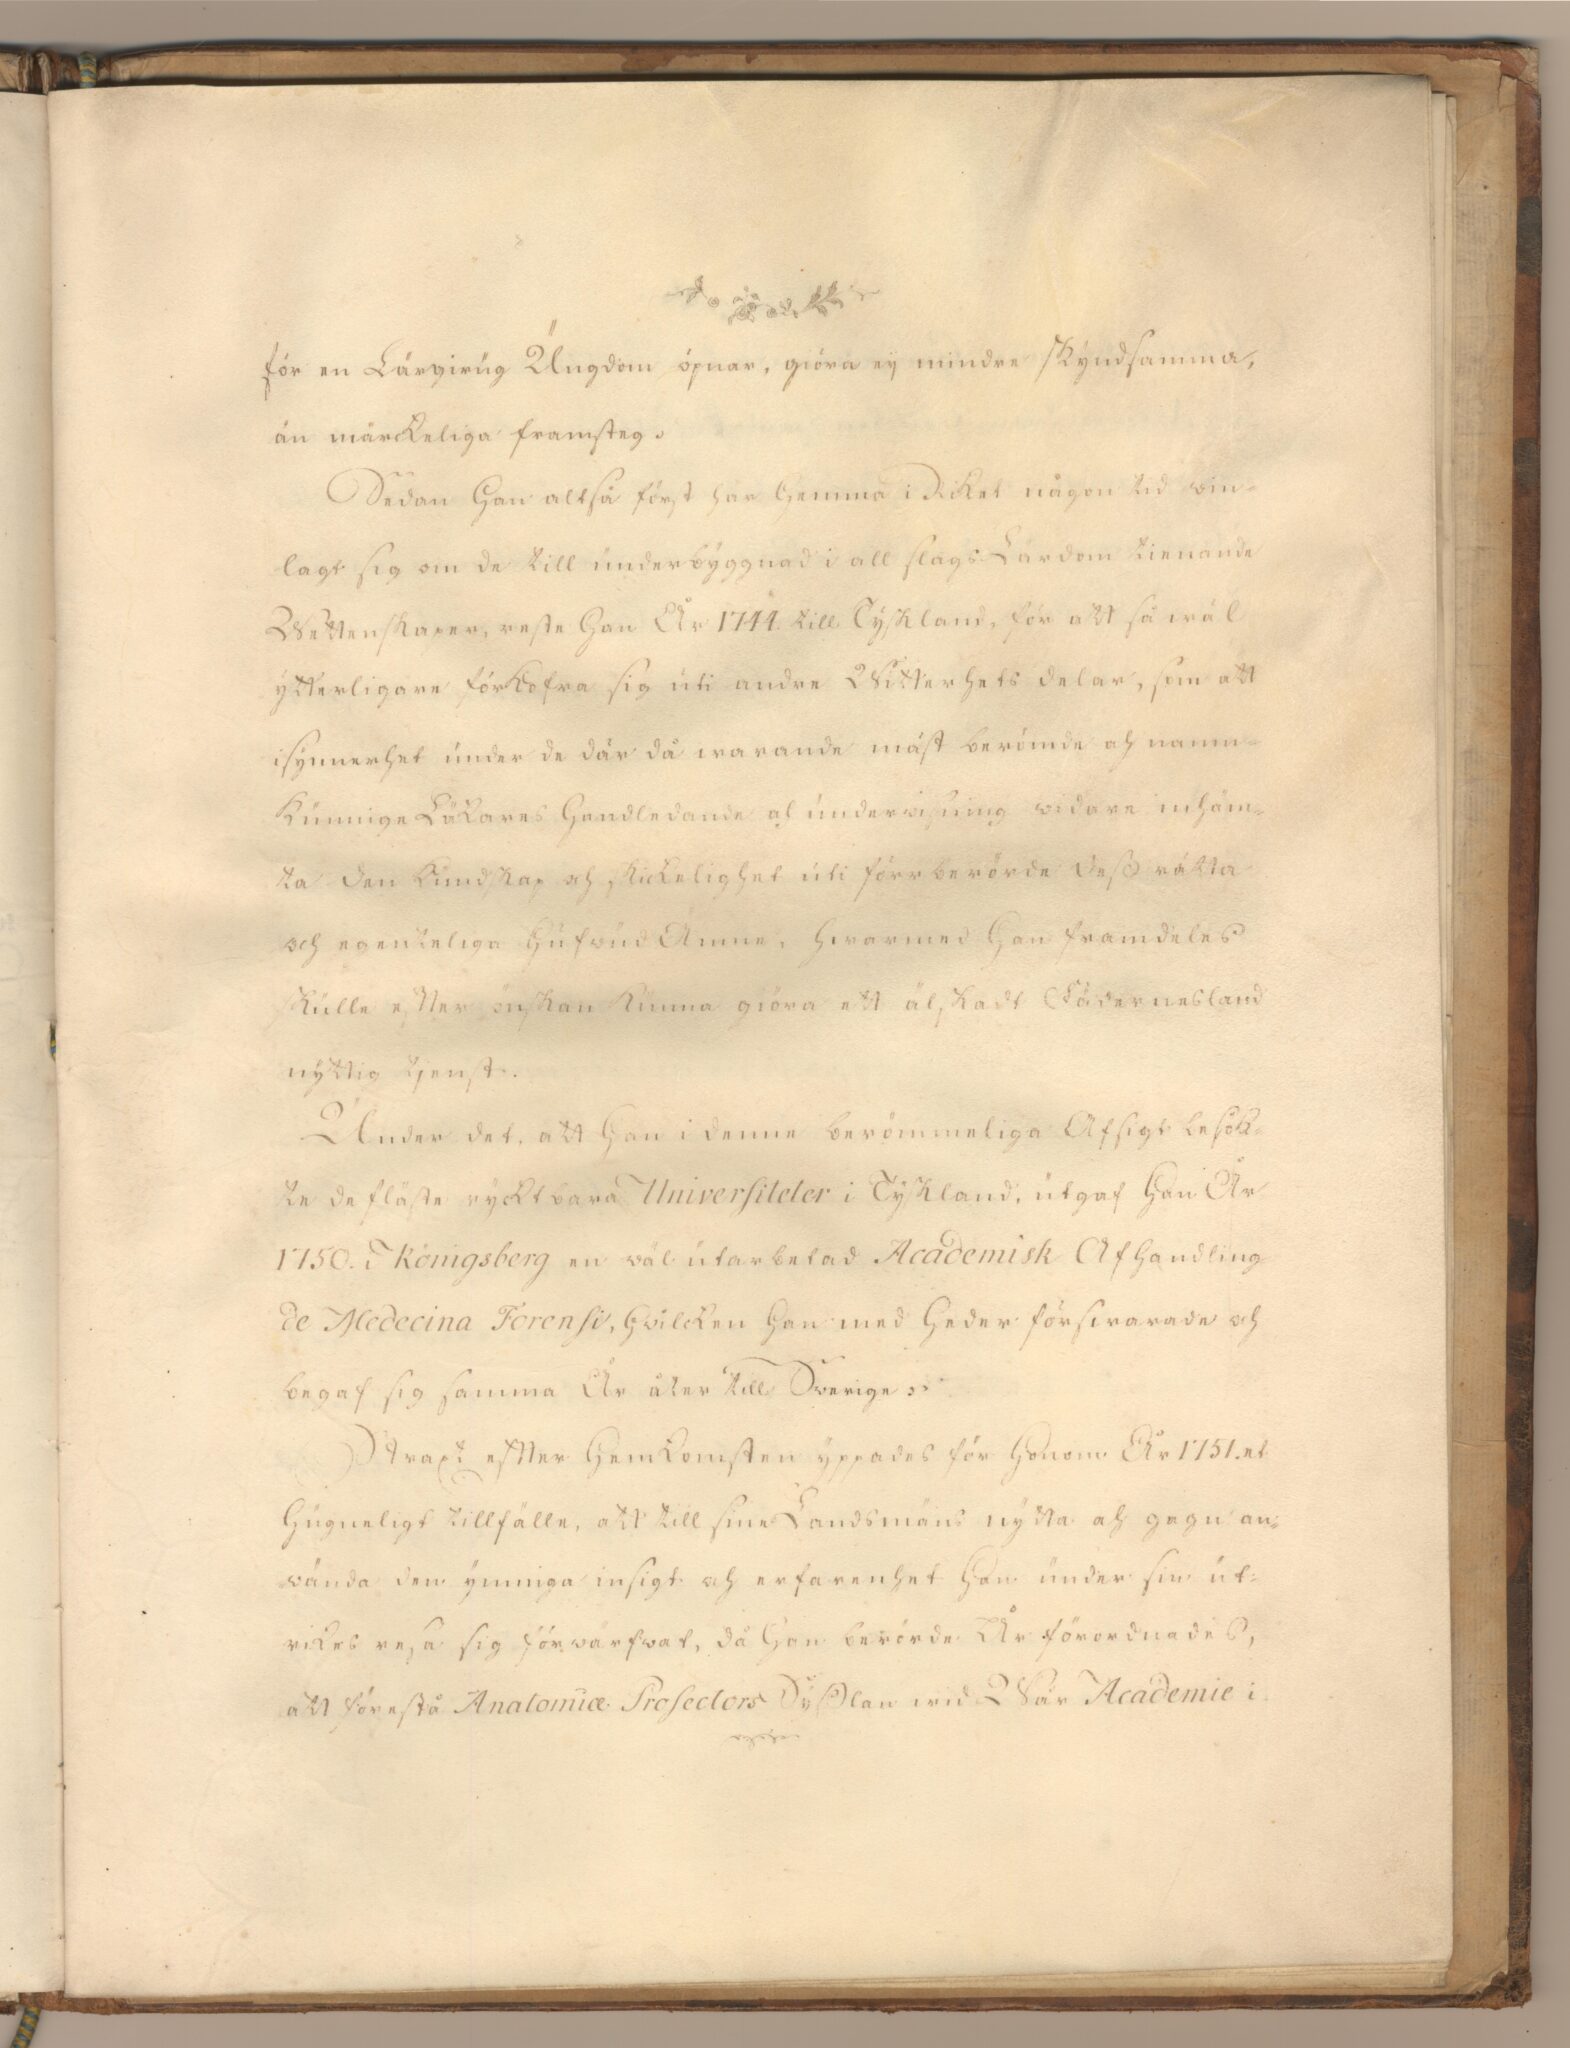 för en Lärgirug Ungdom öpnar, giöra ej mindre skyndsamma,
än märckeliga framsteg.
Sedan Han altså först här Hemma i Riket någon tid win-
lagt sig om de till underbyggnad i all slags Lärdom tienande
Wettenskaper, reste Han År 1744. till Tyskland, för att så wäl
ytterligare förkofra sig uti andre Witterhets delar, som att
isynnerhet under de där då warande mäst berömde och namn-
kunnige Läkares Handledande och underwisning widare inhäm-
ta den kundskap och skickelighet uti förrberörde dess rätta
och egenteliga Hufwud Ämne, hwarmed Han framdeles
skulle efter önskan kunna giöra ett älskadt Fädernesland
nyttig tjenst.
Under det, att Han i denne berömmeliga Afsigt besök-
te de fläste ryktbara Universiteter i Tyskland, utgaf Han År
1750. i Königsberg en wäl utarbetad Academisk Afhandling
de Medecina Forensi, hwilcken Han med Heder förswarade och
begaf sig samma År åter till Swerige.
Straxt efter Hemkomsten yppades för Honom År 1751. et
Hugneligt tillfälle, att till sine Landsmäns nytta och gagn an-
wända den ymniga insigt och erfarenhet Han under sin ut-
rikes resa sig förwärfwat, då Han berörde År förordnades,
att förestå Anatomiæ Prosectors Sysslan wid Wår Academie i